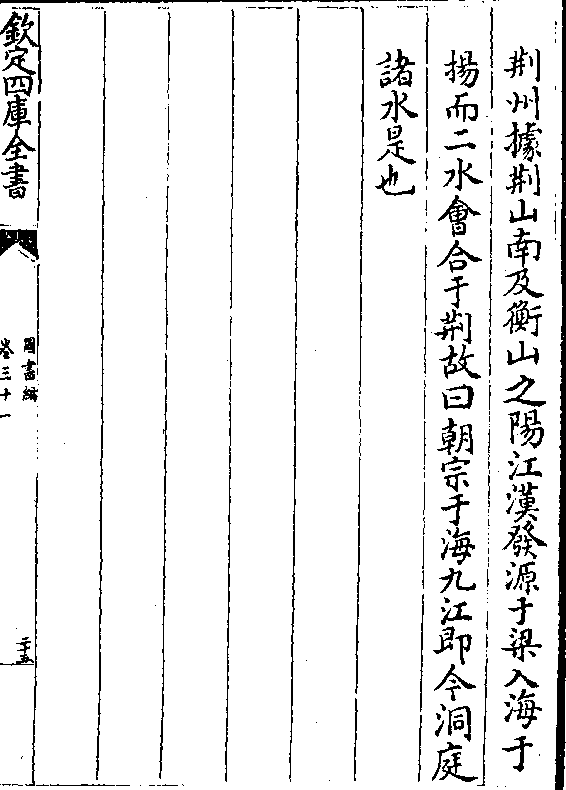 荆州據荆山南及衡山之陽江漢發源于梁入海于
揚而二水會合于荆故曰朝宗于海九江即今洞庭
諸水是也
欽定四庫全書
圖書編
卷三十一
二十五